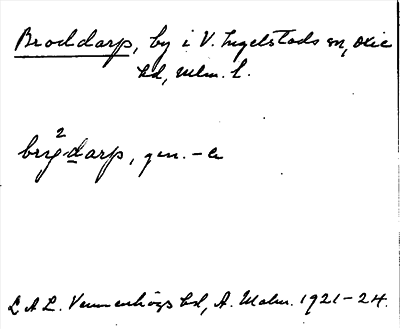 Broddarp, by i V. Ingelstads sn, Oxie
hd, Mlm. l.
2
darp, gen. -a
L A L. Vemmenhögs hd, A. Malm. 1921-24.